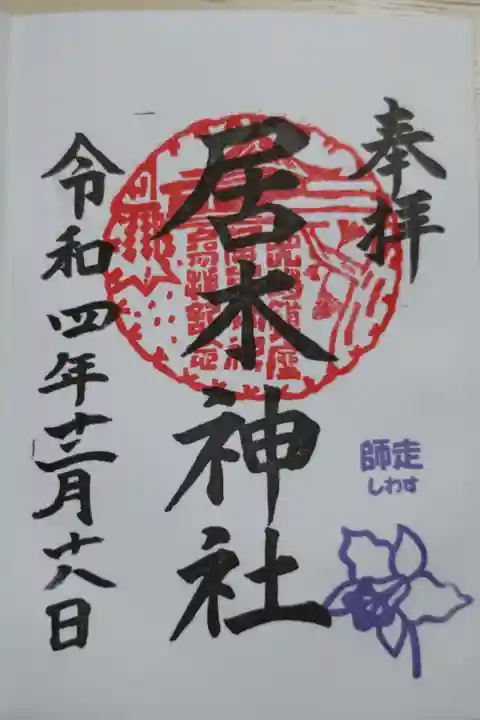 奉拝
居木神社
令和四年十二月十八日
師走
しわす